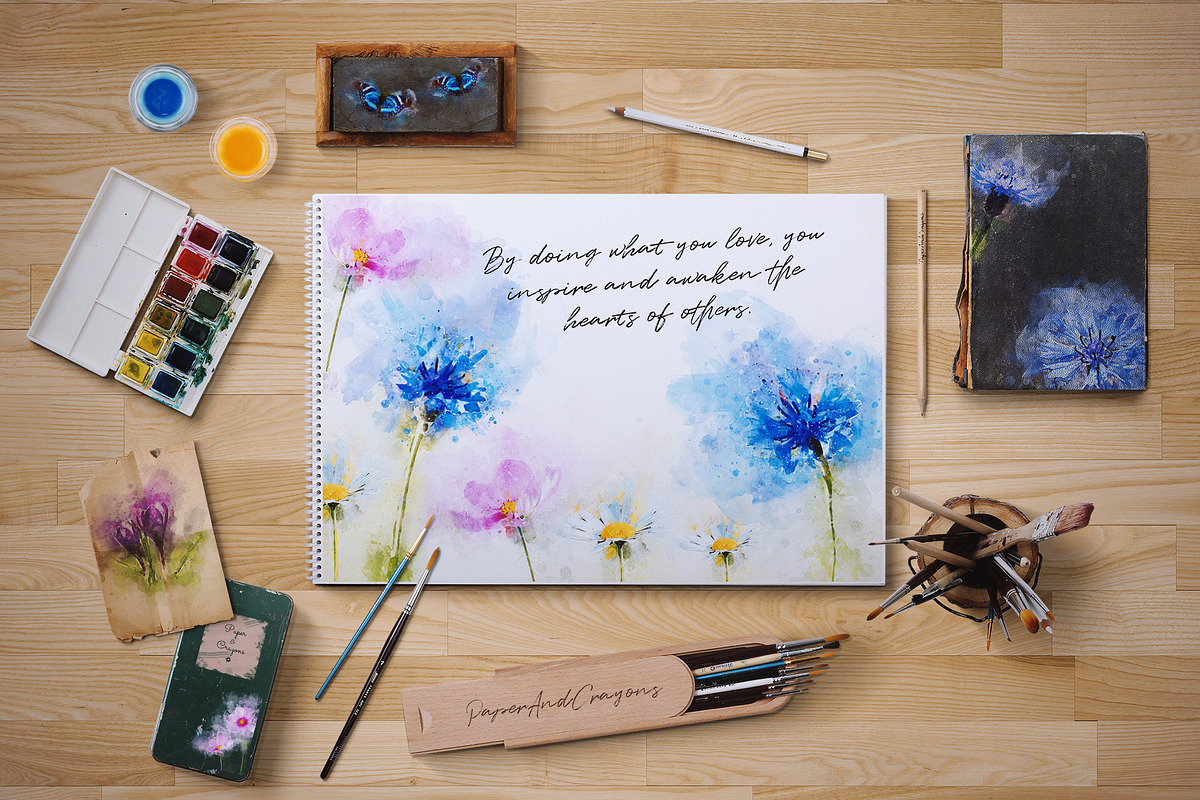 By doing what you love, you
inspire and awaken the
hearts of others.
Paper
&
Crayons
PaperAndCrayons